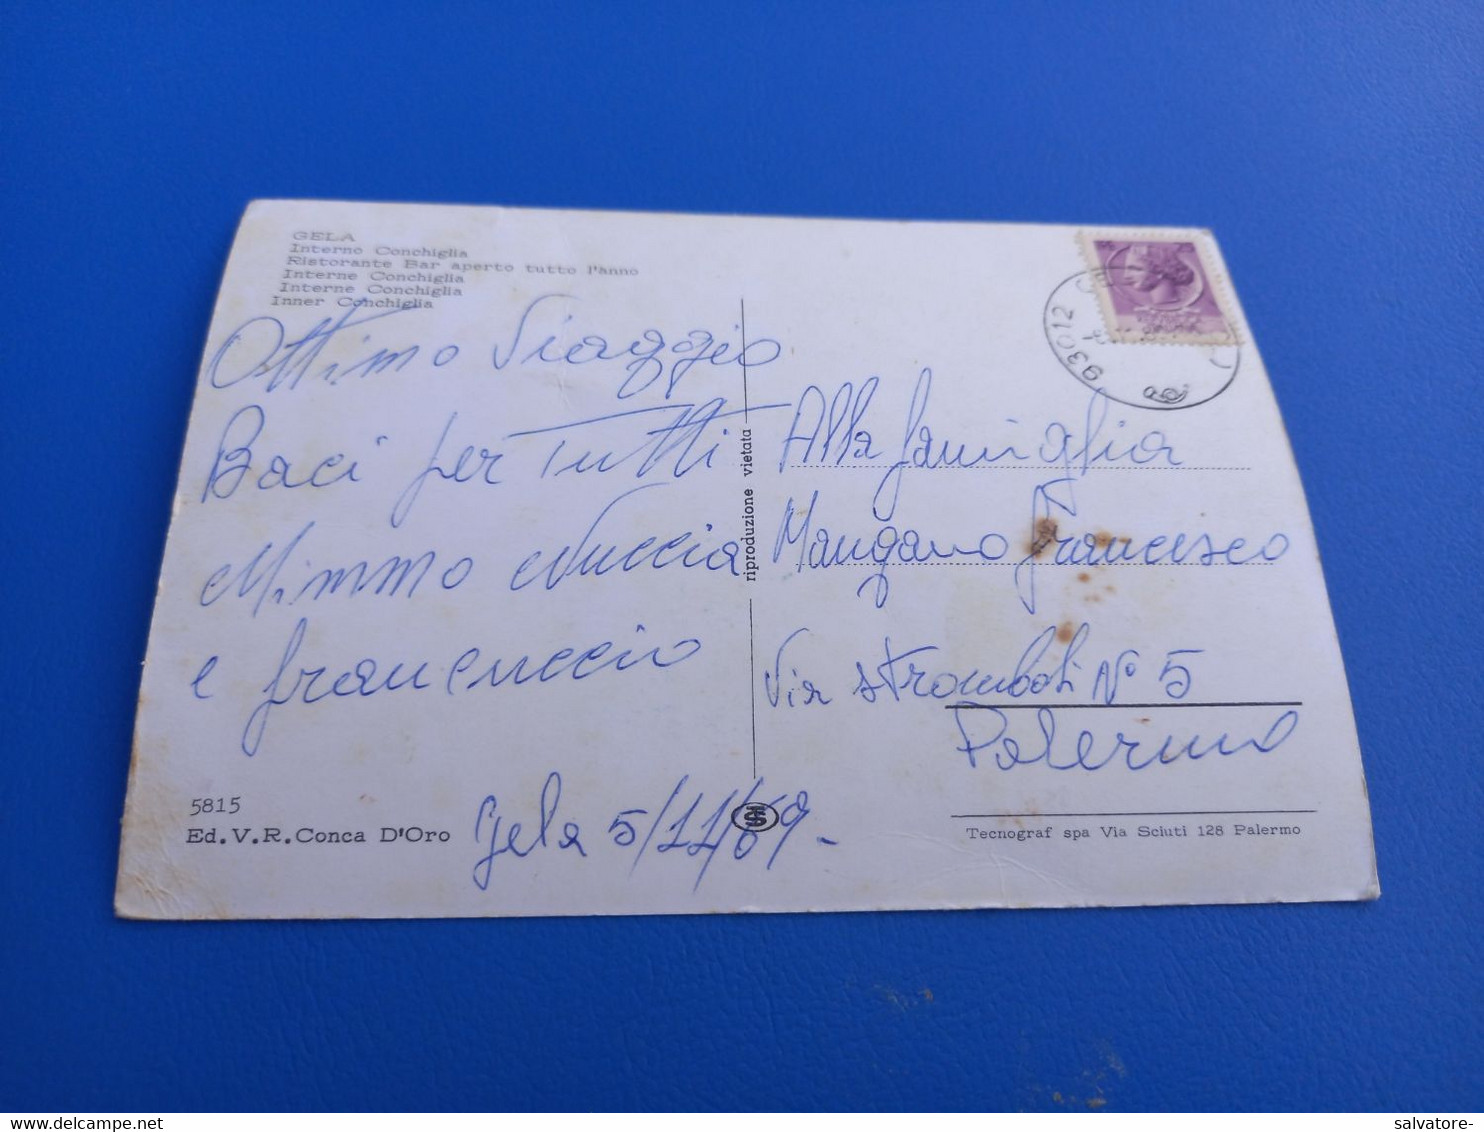 GELA
Interno Conchiglia
Ristorante Bar aperto tutto l'anno
Interne Conchiglia
Interne Conchiglia
Inner Conchiglia
Ottimo Viaggio
Baci per Tutti
Mimmo Nuccia
e francuccio
Gela 5/11/69.
5815
Ed.V.R.Conca D'Oro
riproduzione vietata
93012
Alla famiglia
Mangano Francesco
Via Stromboli N° 5
Palermo
Tecnograf spa Via Sciuti 128 Palermo
salvatore-